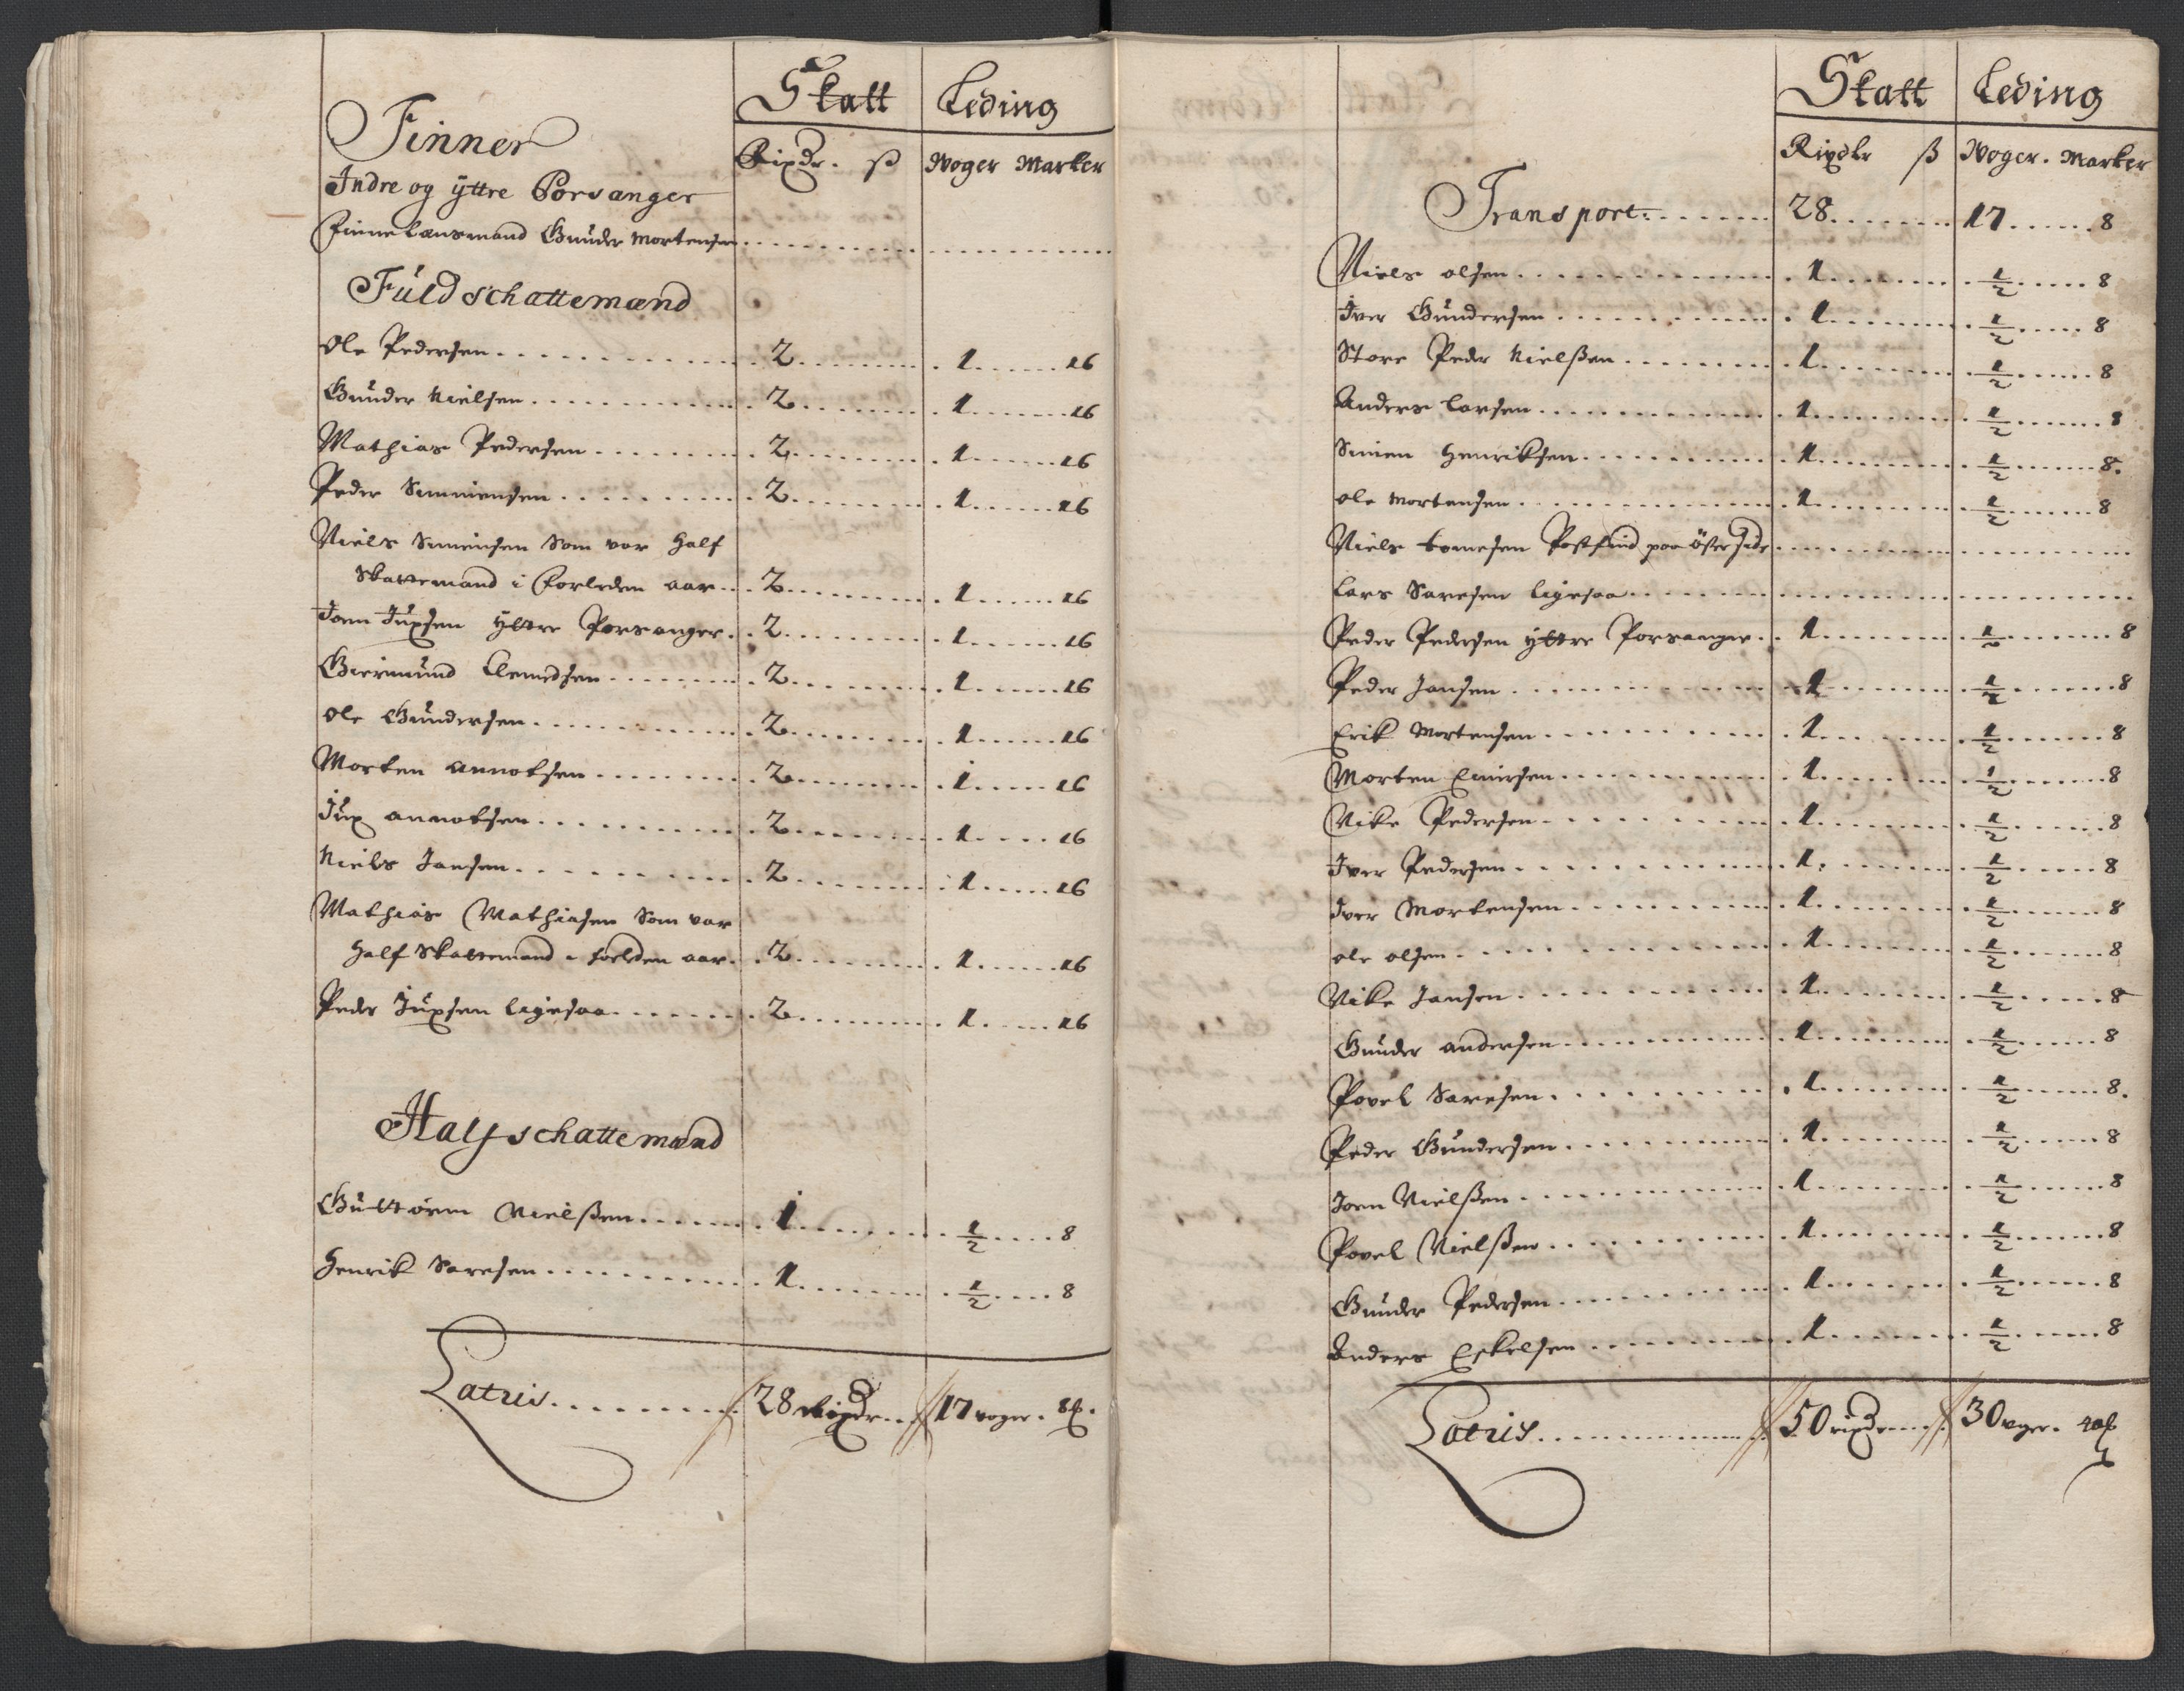 Skatt Leding
Finner Rixdr. ß Woger Marker
Indre og ÿttre Porsanger
Finne Lænsmand Gunder Mortensen
Fuldschattemænd
Ole Pedersen 2 1 16
Gunder Nielsen 2 1 16
Mathias Pedersen 2 1 16
Peder Simmensen 2 1 16
Niels Simensen Som var Half
Skattemand i forleden aar 2 1 16
Joen Juxsen ÿttre Porsanger 2 1 16
Giermund Clemedsen 2 1 16
Ole Gundersen 2 1 16
Morten Annotsen 2 1 16
Jux Annotsen 2 1 16
Niels Jansen 2 1 16
Mathias Mathiasen Som var
Half Skattemand i forleden aar 2 1 16
Peder Juxsen ligesaa 2 1 16
Halfschattemænd
Guttorm Nielßen 1 1/2 8
Henrik Saresen 1 1/2 8
Latris 28 Rixdr 17 woger. 8
Skatt Leding
Rixdr ß Woger. Marker
Transport 28 17 8
Niels olsen 1 1/2 8
Iver Gundersen 1 1/2 8
Store Peder Nielßen 1 1/2 8
Anders Larsen 1 1/2 8
Simen Henriksen 1 1/2 8.
ole Mortensen 1 1/2 8
Niels Tomesen Postfind paa öster side
Lars Saresen ligesaa
Peder Pedersen ÿttre Porsanger 1 1/2 8
Peder Jansen 1 1/2 8
Erik Mortensen 1 1/2 8
Morten 1 1/2 8
Nike Pedersen 1 1/2 8
Iver Pedersen 1 1/2 8
Iver Mortensen 1 1/2 8
ole olsen 1 1/2 8
Nike Jansen 1 1/2 8
Gunder andersen 1 1/2 8
Povel Saresen 1 1/2 8.
Peder Gundersen 1 1/2 8
Joen Nielßen 1 1/2 8
Povel Nielßen 1 1/2 8
Gunder Pedersen 1 1/2 8
Anders Eskelsen 1 1/2 8
Latris 50 rixdr 30 wger.